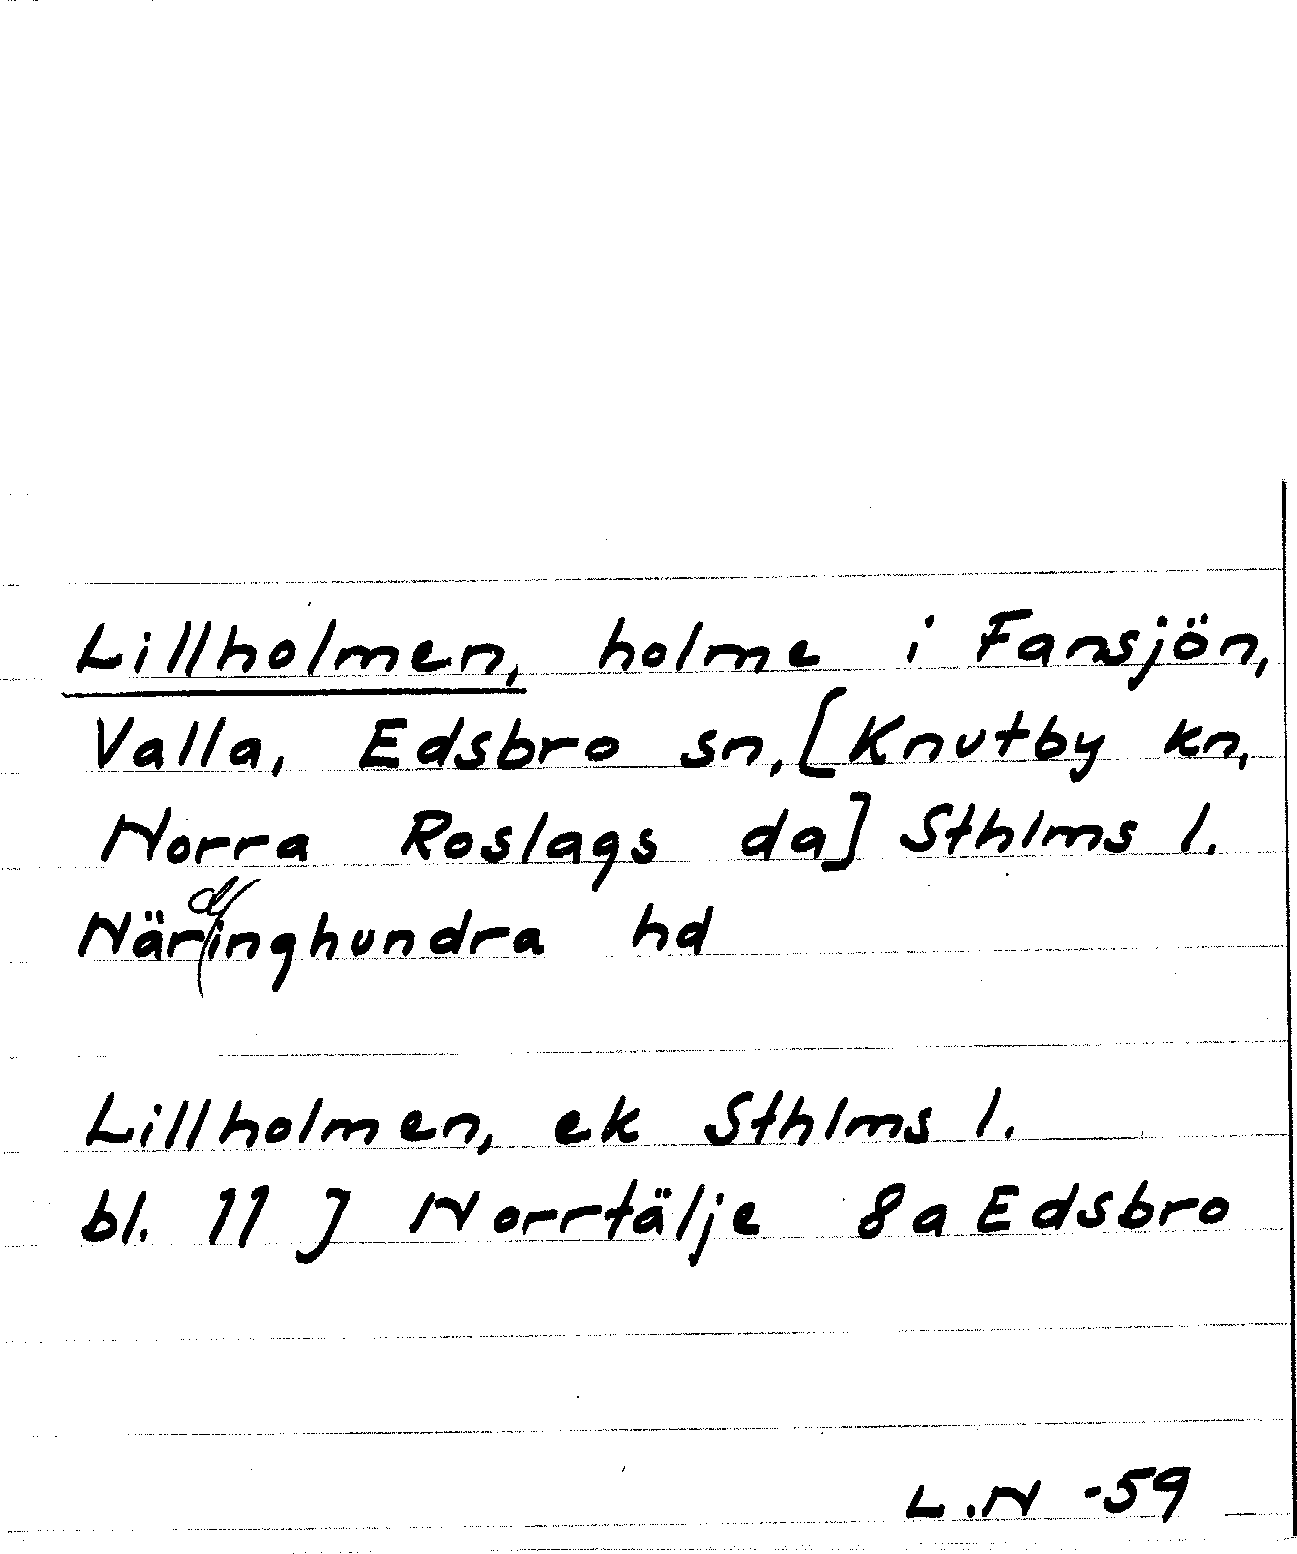 Lillholmen, holme i Fansjön,
Valla, Edsbro sn, [Knutby kn,
Norra Roslags da] Sthlms l.
Närdinghundra hd
Lillholmen, ek Sthlms l.
bl. 11 J Norrtälje 8a Edsbro
L.N -59